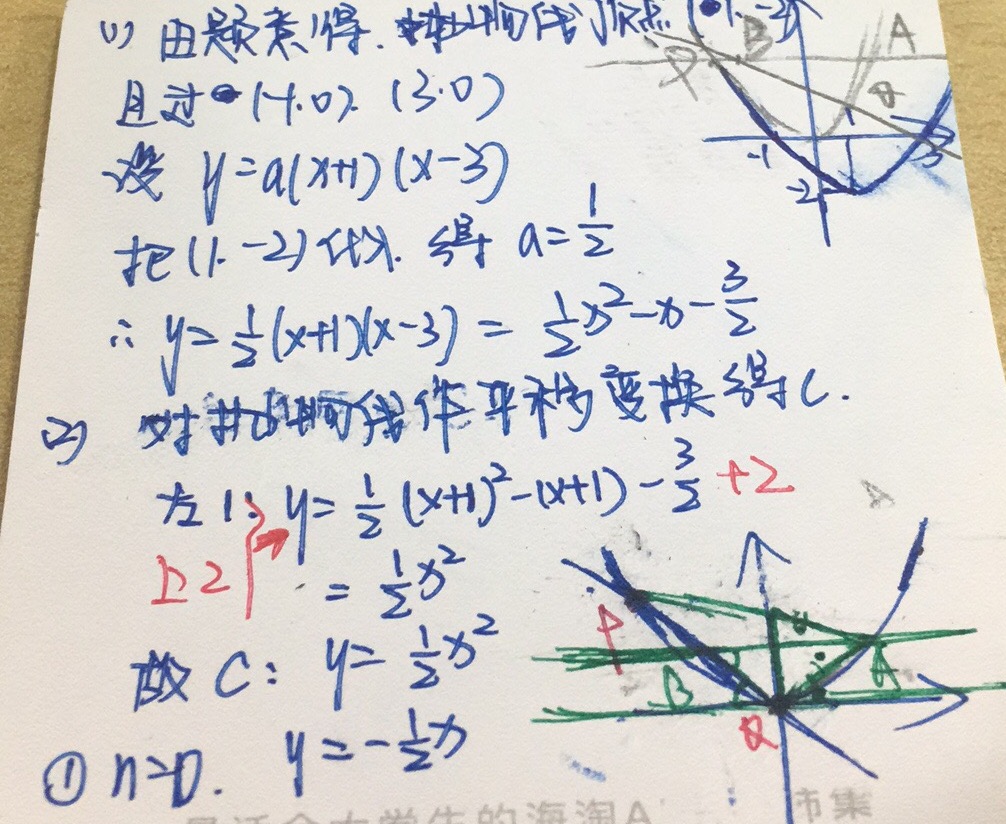 (1) 由题意得. 抛物线顶点(1.-2)
且过(-1.0). (3.0)
设 y=a(x+1)(x-3)
把(1.-2)代入. 得 a=1/2
∴ y=1/2(x+1)(x-3) = 1/2x²-x-3/2
(2) 对抛物线作平移变换得C.
左1: y=1/2(x+1)²-(x+1)-3/2+2
上2
=1/2x²
故 C: y=1/2x²
① n=0. y=-1/2x
P B A Q
-1 1 3
-2
P B A Q